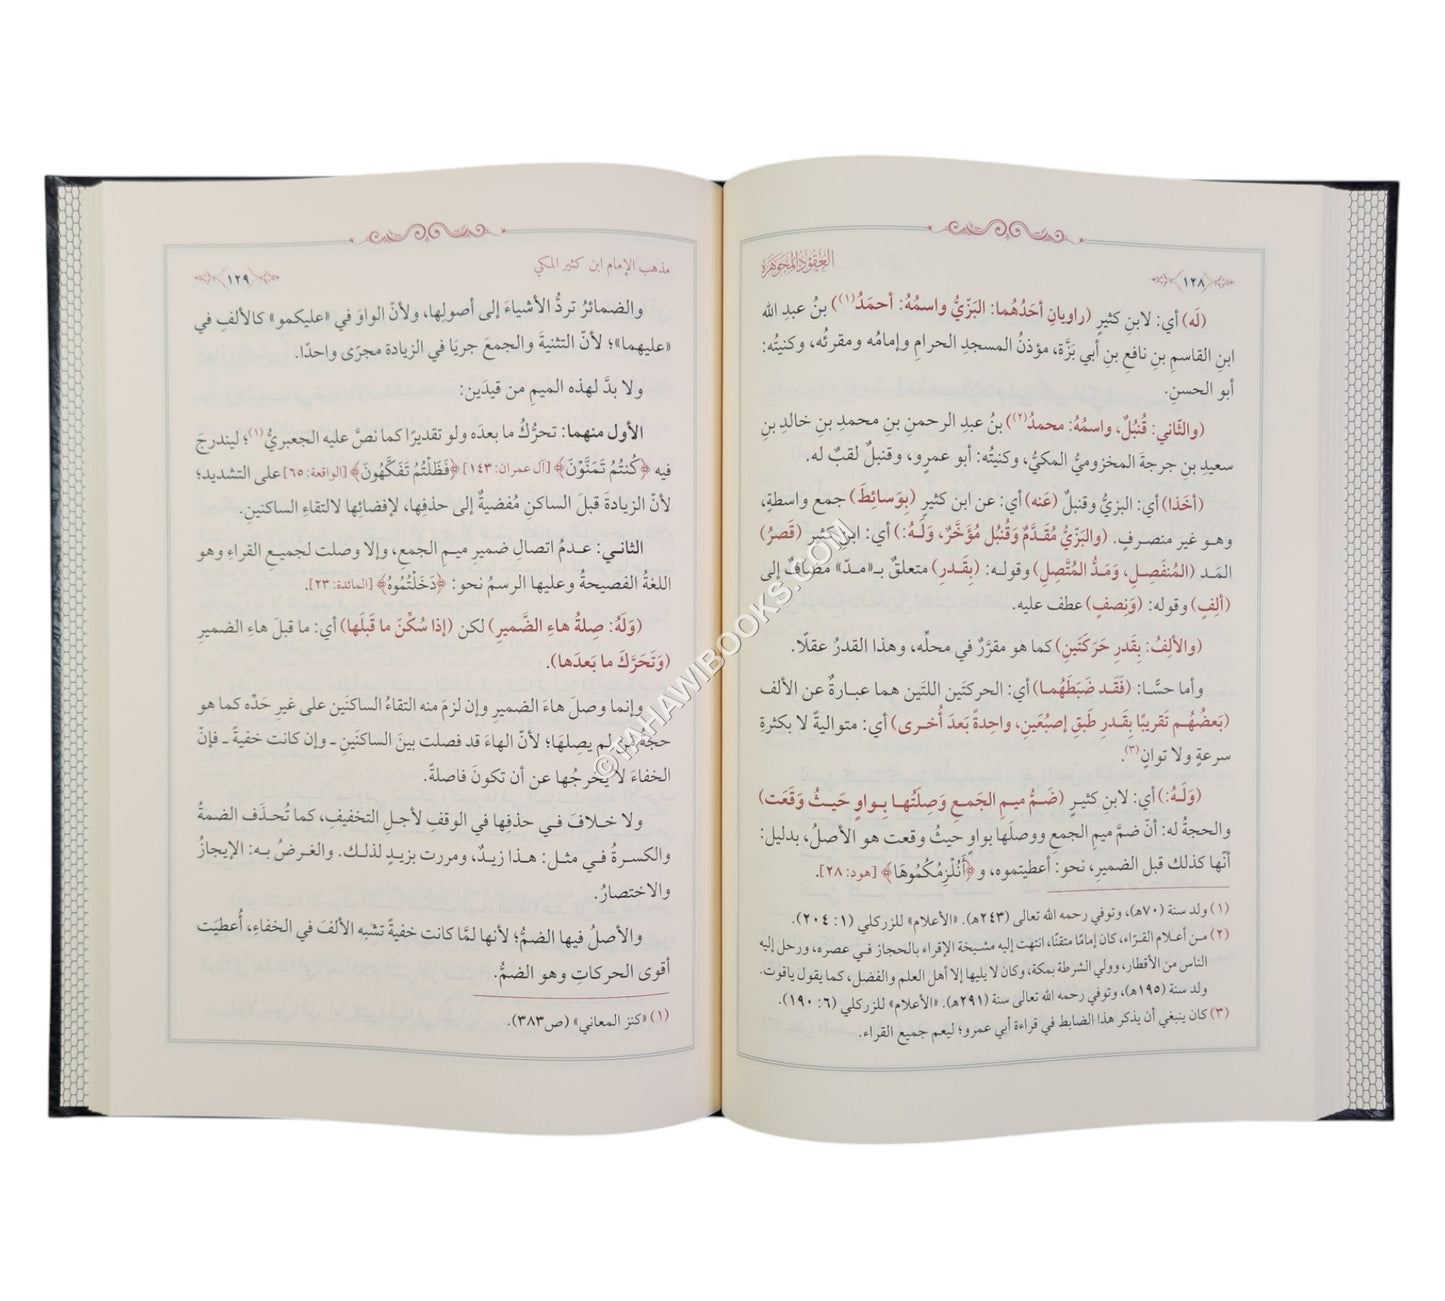 العقود المجوهرة
١٢٨
(لَه) أي: لابنِ كثيرٍ (راويانِ أحَدُهُما: البَزّيُّ واسمُهُ: أحمَدُ(١)) بنُ عبدِ الله
ابنِ القاسمِ بنِ نافعِ بنِ أبي بَزَّة، مؤذنُ المسجدِ الحرامِ وإمامُه ومقرئُه، وكنيتُه:
أبو الحسنِ.
(والثَّاني: قُنبُلٌ، واسمُهُ: محمدُ(٢)) بنُ عبدِ الرحمنِ بنِ محمدِ بنِ خالدِ بنِ
سعيدِ بنِ جرجةَ المخزوميُّ المكيُّ، وكنيتُه: أبو عمرٍو، وقنبلٌ لقبٌ له.
(أخَذا) أي: البزيُّ وقنبلٌ (عَنه) أي: عن ابن كثيرٍ (بِوَسائِطَ) جمع واسطةٍ،
وهـو غير منصرفٍ. (والبَزّيُّ مُقَدَّمٌ وَقُنبُل مُؤَخَّرٌ، وَلَـهُ:) أي: ابنِ كثير (قَصرُ)
المَد (المُنفَصِلِ، وَمَدُّ المُتَّصِلِ) وقولـه: (بِقَدرِ) متعلقٌ بـ«مدّ» مضافٌ إلى
(ألِفٍ) وقوله: (وَنِصفٍ) عطف عليه.
(والألِفُ: بِقَدرِ حَرَكَتَينِ) كما هو مقرَّرٌ في محلِّه، وهذا القدرُ عقلًا.
وأما حسًّا: (فَقَـد ضَبَطَهُمـا) أي: الحركتَين اللتَين هما عبـارةٌ عن الألف
(بَعضُهُـم تَقريبًا بِقَـدرِ طَبقِ إصبُعَينِ، واحِدةً بَعدَ أُخـرى) أي: متواليةً لا بكثرةِ
سرعةٍ ولا توانٍ(٣).
(وَلَـهُ:) أي: لابنِ كثيـرٍ (ضَـمُّ ميـمِ الجَمـعِ وَصِلَتُهـا بِـواوٍ حَيـثُ وَقَعَت)
والحجةُ له: أنّ ضمَّ ميمِ الجمعِ ووصلَها بواوٍ حيثُ وقعت هو الأصلُ، بدليل:
أنّها كذلك قبل الضميرِ، نحو: أعطيتموه، و﴿أَنُلْزِمُكُمُوهَا﴾ [هود: ٢٨].
(١) ولد سنة (٧٠هـ)، وتوفي رحمه الله تعالى (٢٤٣هـ). «الأعلام» للزركلي (١: ٢٠٤).
(٢) مـن أعلام القـرّاء، كان إمامًا متقنًا، انتهت إليه مشيخة الإقراء بالحجاز فـي عصره، ورحل إليه
الناس من الأقطار، وولي الشرطة بمكة، وكان لا يليها إلا أهل العلم والفضل، كما يقول ياقوت.
ولد سنة (١٩٥هـ)، وتوفي رحمه الله تعالى سنة (٢٩١هـ). «الأعلام» للزركلي (٦: ١٩٠).
(٣) كان ينبغي أن يذكر هذا الضابط في قراءة أبي عمرو؛ ليعم جميع القراء.
مذهب الإمام ابن كثير المكي
١٢٩
والضمائرُ تردُّ الأشياءَ إلى أصولِها، ولأنّ الواوَ في «عليكمو» كالألفِ في
«عليهما»؛ لأنّ التثنيةَ والجمعَ جريَا في الزيادة مجرًى واحدًا.
ولا بدَّ لهذه الميمِ من قيدَين:
الأول منهما: تحرُّكُ ما بعدَه ولو تقديرًا كما نصَّ عليه الجعبريُّ(١)؛ ليندرجَ
فيه ﴿كُنتُمْ تَمَنَّوْنَ﴾ [آل عمران: ١٤٣] ﴿فَظَلْتُمْ تَفَكَّهُونَ﴾ [الواقعة: ٦٥] على التشديد؛
لأنّ الزيادةَ قبلَ الساكنِ مُفضيةٌ إلى حذفِها، لإفضائِها لالتقاءِ الساكنينِ.
الثانـي: عـدمُ اتصال ضميرِ ميمِ الجمعِ، وإلا وصلت لجميـعِ القراءِ وهو
اللغةُ الفصيحةُ وعليها الرسمُ نحو: ﴿دَخَلْتُمُوهُ﴾ [المائدة: ٢٣].
(وَلَهُ: صِلةُ هاءِ الضَّميرِ) لكن (إذا سُكِّنَ ما قَبلَها) أي: ما قبلَ هاءِ الضميرِ
(وَتَحَرَّكَ ما بَعدَها).
وإنما وصلَ هاءَ الضميرِ وإن لزمَ منه التقاءُ الساكنَين على غيرِ حَدِّه كما هو
حجةُ مَن لم يصِلهَا؛ لأنّ الهاءَ قد فصلت بينَ الساكنَينِ ـ وإن كانت خفيةً ـ فإنّ
الخفاءَ لا يُخرجُها عن أن تكونَ فاصلةً.
ولا خـلافَ فـي حذفِها في الوقفِ لأجلِ التخفيفِ، كما تُحـذَف الضمةُ
والكسـرةُ فـي مثـل: هـذا زيـدٌ، ومررت بزيـدٍ لذلـك. والغرضُ بـه: الإيجازُ
والاختصارُ.
والأصلُ فيها الضمُّ؛ لأنها لمَّا كانت خفيةً تشبه الألفَ في الخفاءِ، أُعطيَت
أقوى الحركاتِ وهو الضمُّ.
(١) «كنز المعاني» (ص٣٨٣).
©TAHAWIBOOKS.COM